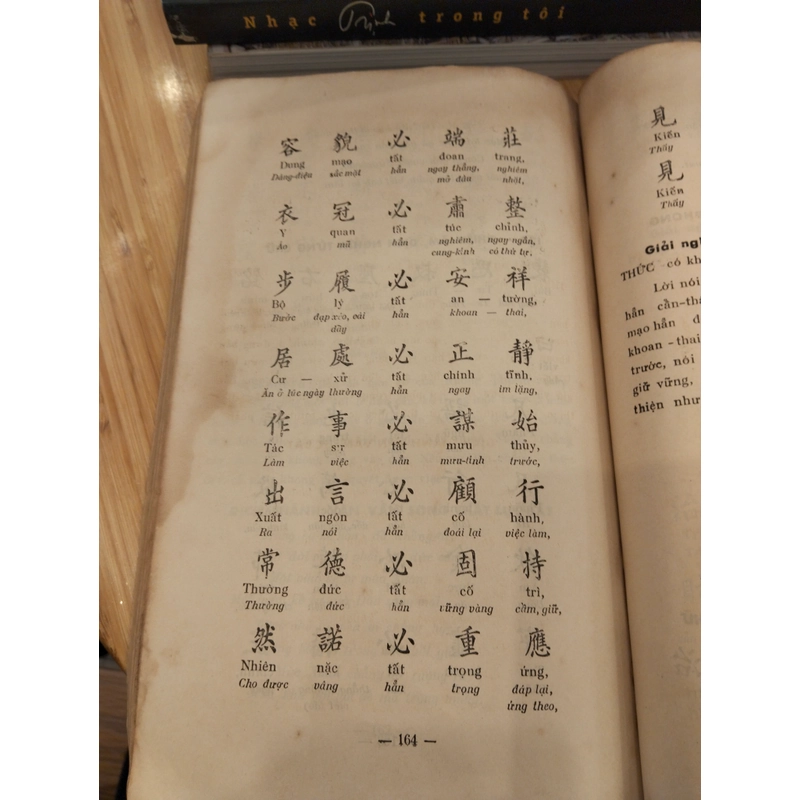 Nhạc Trịnh trong tôi
容 貌 必 端 莊
Dung mạo tất đoan trang,
Dáng-điệu sắc mặt hẳn ngay thẳng, nghiêm
mở đầu nhặt,
衣 冠 必 肅 整
Y quan tất túc chỉnh,
Áo mũ hẳn nghiêm, ngay ngắn,
cung-kính có thứ tự,
步 履 必 安 祥
Bộ lý tất an — tường,
Bước đạp xéo, cái hẳn khoan — thai,
dầy
居 處 必 正 靜
Cư — xử tất chính tĩnh,
Ăn ở lúc ngày thường hẳn ngay im lặng,
作 事 必 謀 始
Tác sự tất mưu thủy,
Làm việc hẳn mưu-tính trước,
出 言 必 顧 行
Xuất ngôn tất cố hành,
Ra nói hẳn đoái lại việc làm,
常 德 必 固 持
Thường đức tất cố trì,
Thường đức hẳn vững vàng cầm, giữ,
然 諾 必 重 應
Nhiên nặc tất trọng ứng,
Cho được vâng hẳn trọng đáp lại,
ứng theo,
— 164 —
見
Kiến
Thấy
見
Kiến
Thấy
Giải ngh
THỨC có kh
Lời nói
hẳn cần-th
mạo hẳn đ
khoan-thai
trước, nói
giữ vững,
thiện như